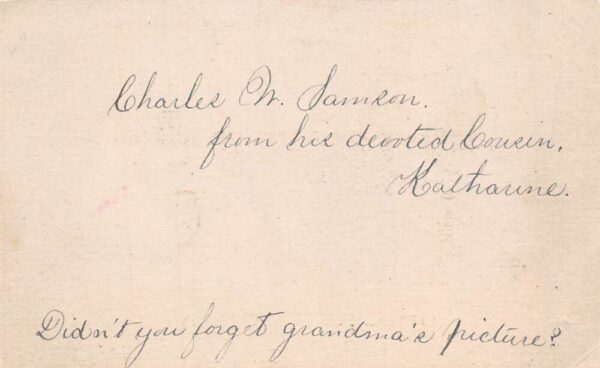 Charles W. Samson.
from his devoted Cousin,
Katharine.
Didn't you forget grandma's picture?